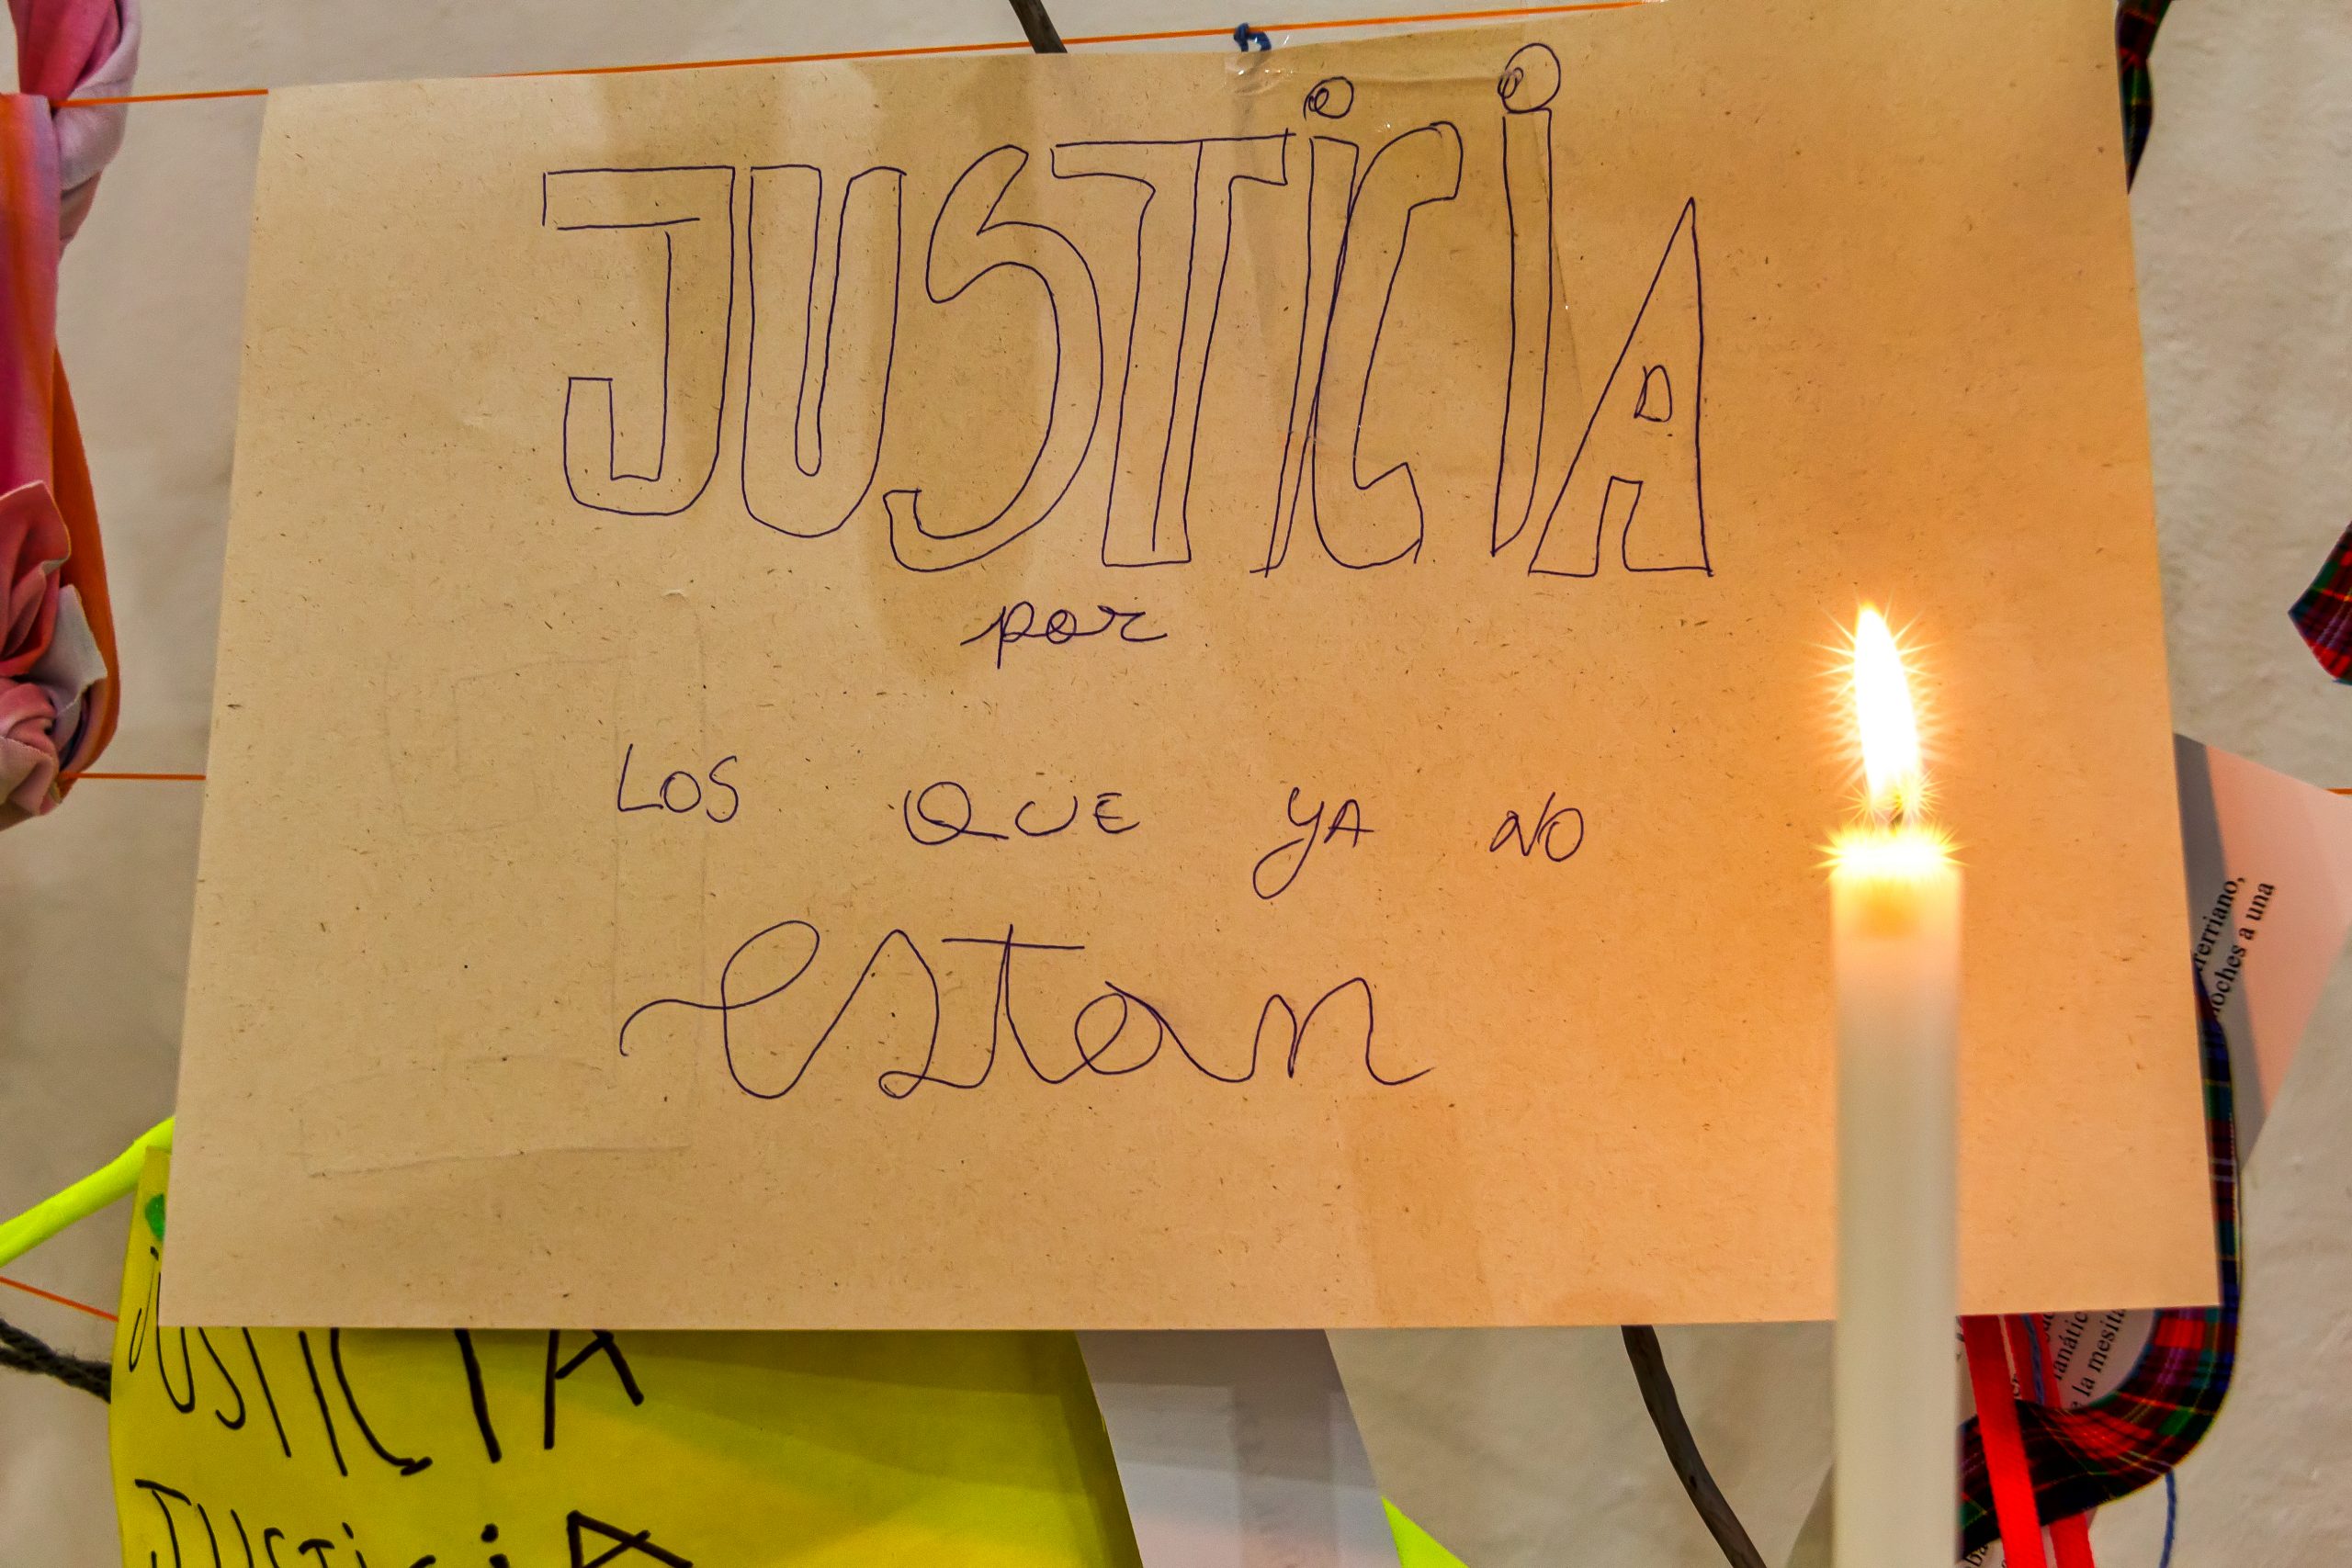 JUSTiCiA
por
LOS QUE YA NO
estan
JUSTICIA
JUSTiCiA
noches a una
la mesita